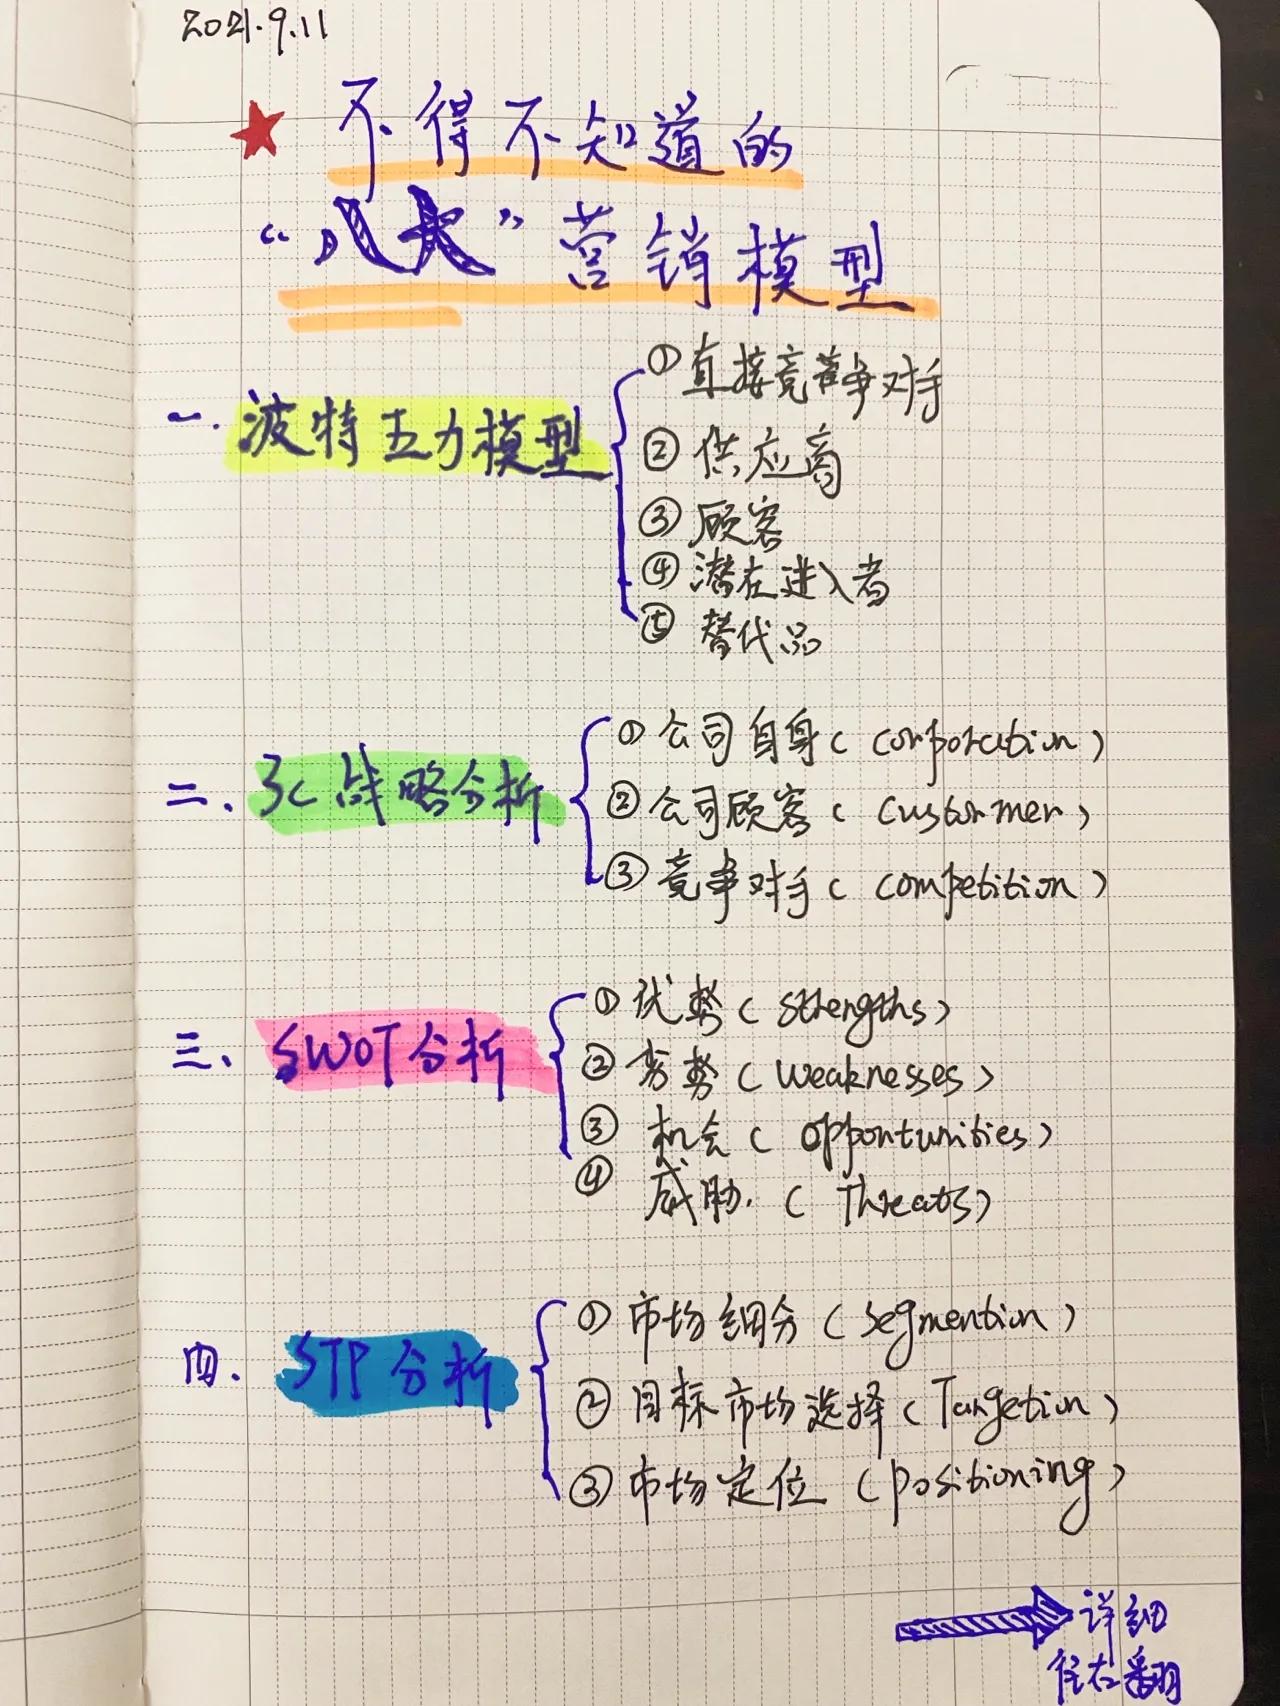 2021.9.11
不得不知道的
“八大”营销模型
一.波特五力模型
①直接竞争对手
②供应商
③顾客
④潜在进入者
⑤替代品
二、3C战略分析
①公司自身(corporation)
②公司顾客(custormer)
③竞争对手(competition)
三、SWOT分析
①优势(strengths)
②劣势(weaknesses)
③机会(opportunities)
④威胁.(Threats)
四、STP分析
①市场细分(segmention)
②目标市场选择(Targetion)
③市场定位(positioning)
详细
往右翻